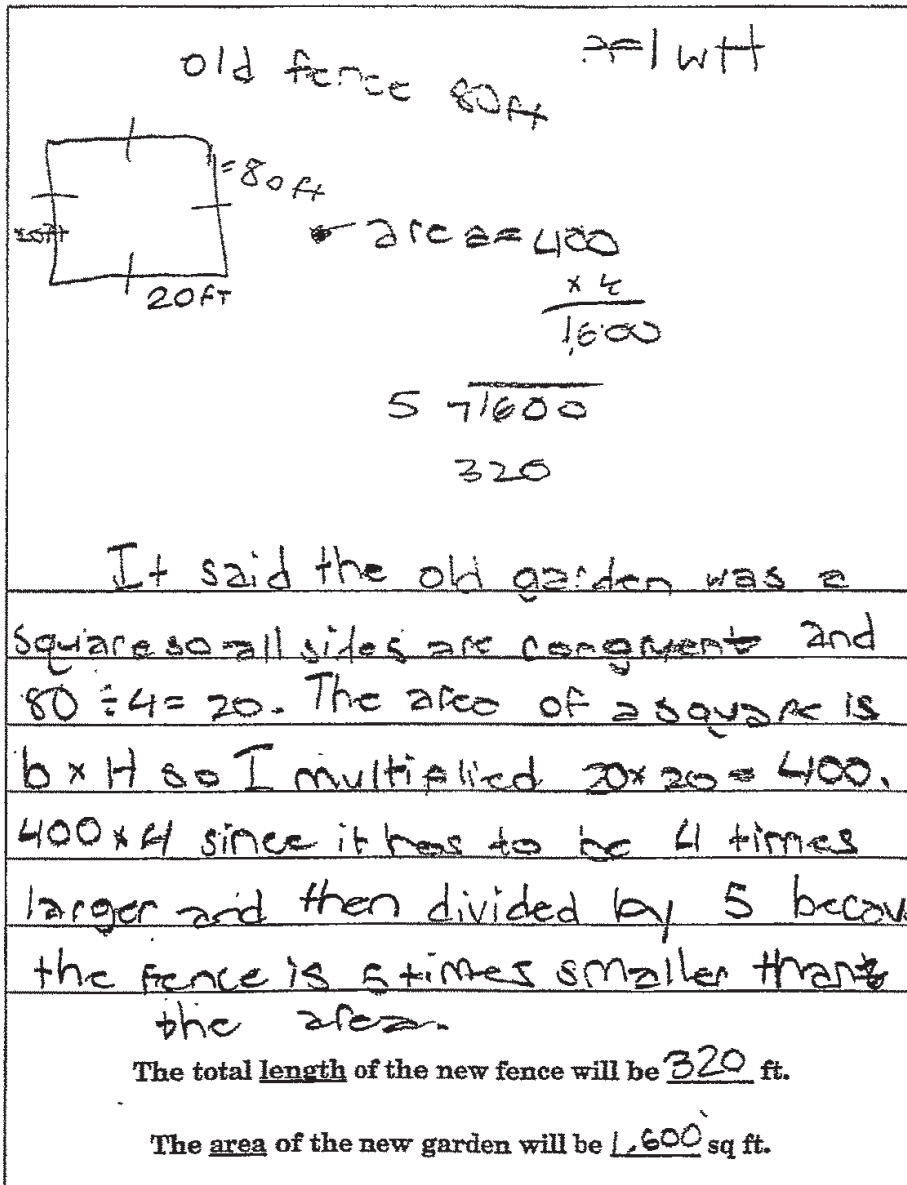 old fence 80ft
a=lwH
=80ft
20FT
area=400
x 4
1,600
5 1600
320
It said the old garden was a
square so all sides are congruent and
80÷4= 20. The area of a square is
b x H so I multiplied 20x20=400.
400x4 since it has to be 4 times
larger and then divided by 5 becau
the fence is 5 times smaller than
the area.
The total length of the new fence will be 320 ft.
The area of the new garden will be 1,600 sq ft.